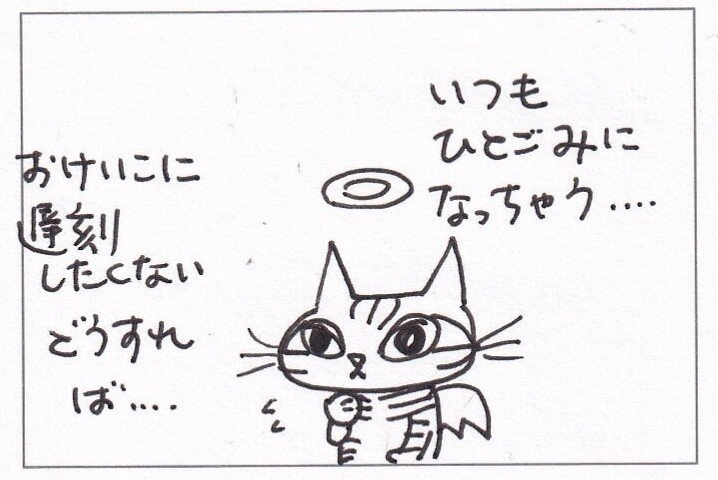 いつも
ひとごみに
なっちゃう....
おけいこに
遅刻
したくない
どうすれ
ば....